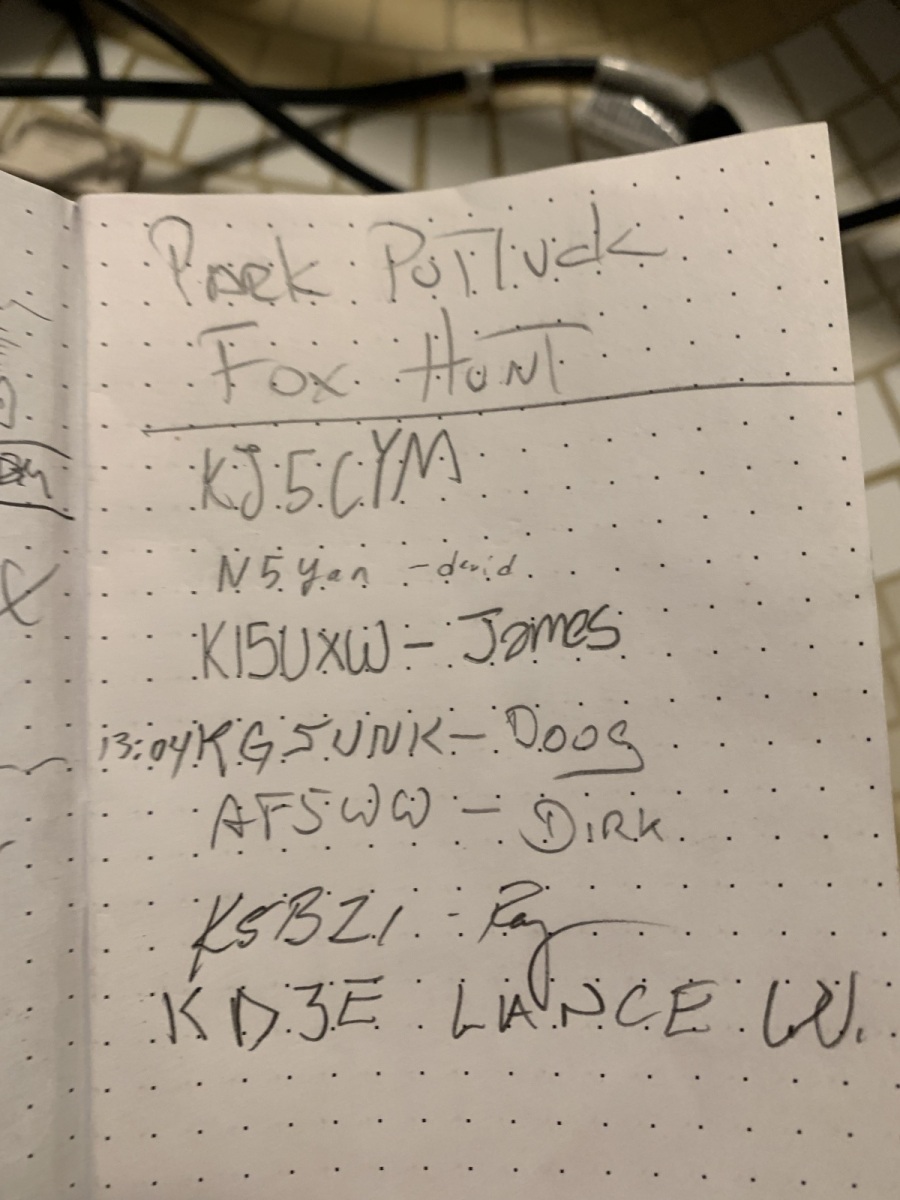 Park Potluck
Fox Hunt
KJ5CYM
N5yan - david
KI5UXW - James
13:04 KG5UNK - Doog
AF5WW - Dirk
K5BZI - Ray
KD3E LANCE W.